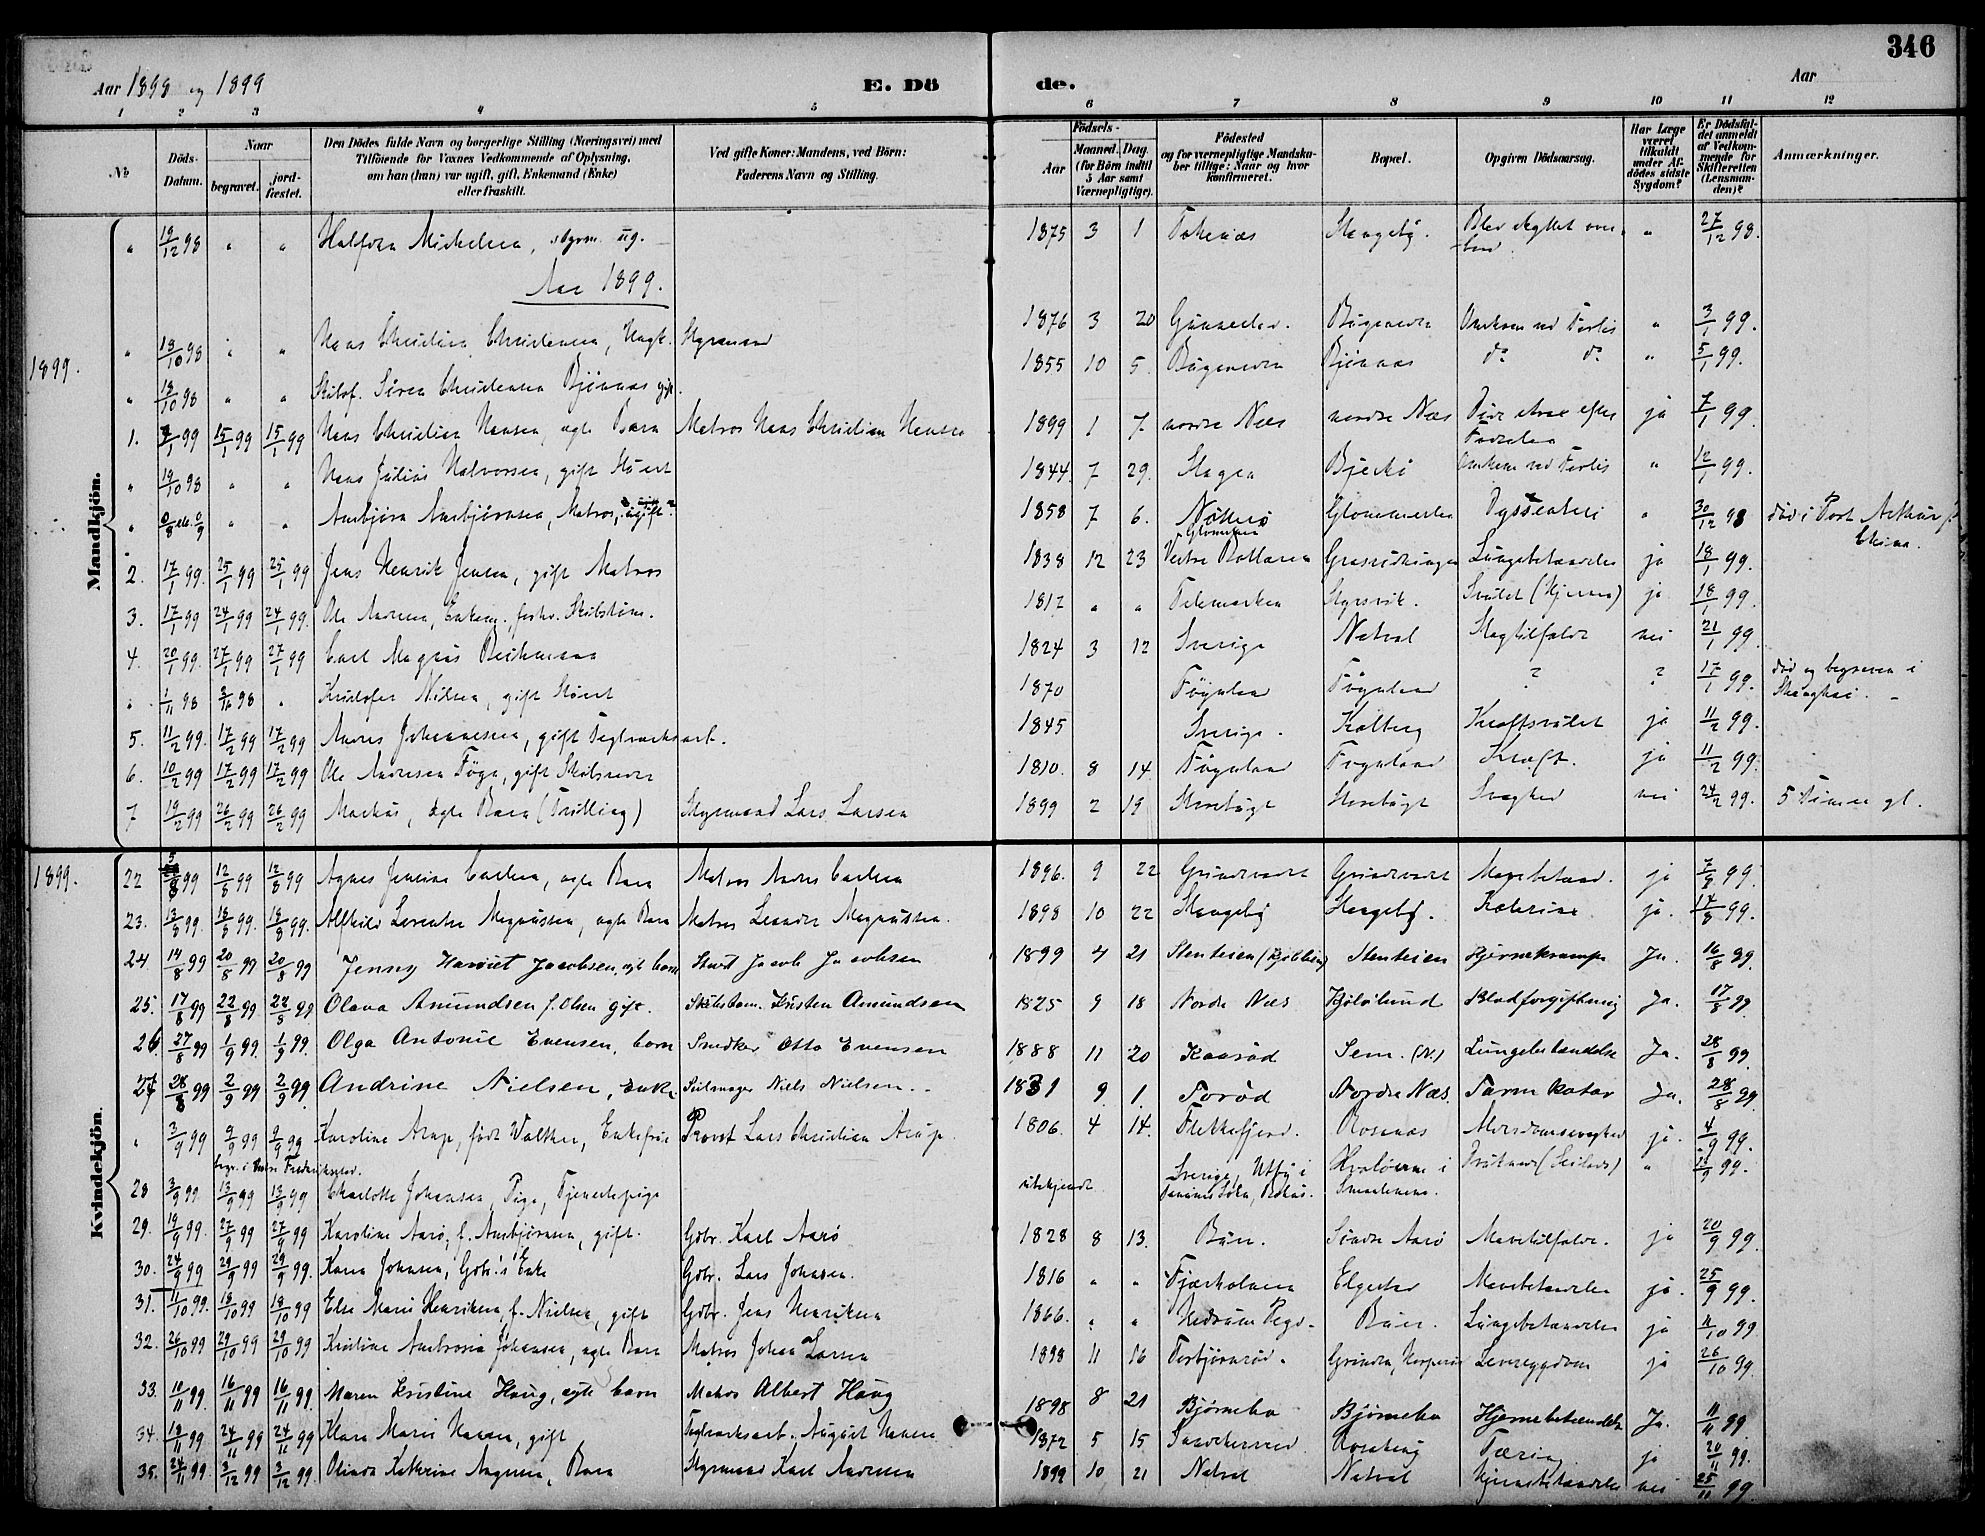 346
Aar 1898 og 1899
E. Döde.
Aar
1 2 3 4 5 6 7 8 9 10 11 12
№
Döds-Datum.
Naar begravet. jordfæstet.
Den Dödes fulde Navn og borgerlige Stilling (Næringsvei) med Tilföiende for Voxnes Vedkommende af Oplysning, om han (hun) var ugift, gift, Enkemand (Enke) eller fraskilt.
Ved gifte Koner: Mandens, ved Börn: Faderens Navn og Stilling.
Födsels- Aar Maaned. Dag. (for Börn indtil 5 Aar samt Værnepligtige).
Födested og for værnepligtige Mandskaber tillige: Naar og hvor konfirmeret.
Bopæl.
Opgiven Dödsaarsag.
Har Læge været tilkaldt under Afdödes sidste Sygdom?
Er Dödsfaldet anmeldt af Vedkommende for Skifteretten (Lensmanden)?
Anmærkninger.
Mandkjön.
" 19/12 98 " " Halfdan Mikkelsen, styrm. ug. 1875 3 1 Tokenæs Skaugeby. Blev skyllet over bord " 27/12 98.
Aar 1899.
1899.
" 18/10 98 " " Hans Christian Christensen, Ungk. Styrmand 1876 3 20 Gunnerød. Bugaarden Omkom ved Forlis " 3/1 99.
" 18/10 98 " " Skibsf. Sören Christensen Bjönnæs gift. 1855 10 5. Bugaarden Bjönnæs do do " 5/1 99.
1. 7/1 99 15/1 99 15/1 99 Hans Christian Hansen, ægte Barn Matros Hans Christian Hansen 1899 1 7. nordre Næs nordre Næs Döde strax efter Födselen ja 7/1 99.
" 18/10 98 " " Hans Julius Halvorsen, gift Stuert 1844. 7 29. Slagen Bjerkö Omkom ved Forlis " 12/1 99.
" " " Ansbjörn Ansbjörnsen, Matros, ugift 1858 7 6. Nötterö Glommen Dyssenteri " 30/12 98 död i Port Arthur China.
2. 17/1 99. 25/1 99 25/1 99 Jens Henrik Jensen, gift Matros 1838 12 23 Vestre Lungebetændelse ja 18/1 99.
3. 17/1 99 24/1 99 24/1 99. Ole Andersen, Enkem. forhv. Skibstöm. 1812 " " Telemarken Styrsvik. (Hjernen) ja 18/1 99.
4. 20/1 99. 27/1 99 27/1 99 Carl Magnus 1824 3 12 Sverige Natval Slagtilfælde nei 21/1 99
" 1/11 98 2/11 98 " Kristofer Nilsen, gift Stuert 1870 Föynland Föynland ? ? 17/1 99. död og begraven i Shanghai.
5. 11/2 99. 17/2 99 17/2 99 Anders Johannesen, gift Teglværksarb. 1845 Sverige. Kolberg Kræftsvulst ja 11/2 99.
6. 10/2 99 17/2 99 17/2 99 Ole Andersen Föyn, gift Skibsreder 1810. 8 14. Föynland Föynland Kræft. ja 11/2 99.
7 19/2 99 26/2 99 26/2 99 Markus, ægte Barn (Tvilling) Styrmand Lars Larsen 1899 2 19 Stenebugt Stenebugt Svaghed nei 24/2 99. 5 Timer gl.
1899.
Kvindekjön
22 5/8 99 12/8 99 12/8 99 Agnes Jensine Carlsen, ægte Barn Matros Anders Carlsen 1896. 9 22 Grindvoldt Grindvoldt Mavebetænd. ja 7/8 99.
23. 13/8 99. 18/8 99. 18/8 99. Alfhild Lovenda Magnussen, ægte Barn Matros Leander Magnussen. 1898 10 22 Skaugeby Skaugeby. Kolerine ja. 17/8 99.
24 14/8 99 20/8 99 20/8 99 Jenny Harriet Jacobsen, ægte barn Stuert Jacob Jacobsen 1899 4 21 Stenteien Stenteien Hjernekrampe Ja. 16/8 99.
25. 17/8 99 22/8 99 22/8 99. Olava Amundsen f. Olsen gift. Skibstöm. Kristen Amundsen 1825 9 18 Nordre Næs Kjölölund Blodforgiftning Ja. 17/8 99.
26. 27/8 99 1/9 99. 1/9 99. Olga Antonie Evensen, barn Snedker Otto Evensen 1888 11 20 Kaaröd Sem. (N.) Lungebetændelse Ja. 28/8 99.
27 28/8 99 2/9 99 2/9 99. Andrine Nielsen, Enke. Seilmager Niels Nielsen. 1831 9. 1. Toröd Nordre Næs. Tarmkatar Ja. 28/8 99.
" 3/9 99 9/9 99 9/9 99 Karoline Arup, födt Walther, Enkefrue Provst Lars Christian Arup. 1806. 4 14. Flekkefjord. Rosenæs Alderdomssvaghed ja. 4/9 99.
begr. i Fredrikstad.
28 3/9 99. 13/9 99 13/9 99 Charlotte Johansen, Pige, Tjenestepige ubekjendt Sverige, Utby i Hvaløerne i Smaalenene. Druknede " 99.
29. 19/9 99. 27/9 99 27/9 99 Karoline Aarö, f. Ansbjörnsen, gift. Gdbr. Karl Aarö 1828 8 13. Buer. Söndre Aarö Mavetilfælde. ja 20/9 99.
30. 24/9 99 29/9 99 29/9 99. Karen Johnsen, Gdbr.'s Enke Gdbr. Lars Johnsen. 1816 " " Fjærholmen Elgestad Mavebetændelse ja. 25/9 99.
31. 11/10 99. 18/10 99 18/10 99. Else Marie Henriksen, f. Nielsen, gift Gdbr. Jens Henriksen 1866. " " Hedrum Pgd. Buer. Lungebetændelse ja 11/10 99
32. 26/10 99 29/10 99 29/10 99 Kristine Ambrosia Johansen, ægte Barn Matros Johan Larsen 1898 11 16 Torbjörnröd. Grinden, Leversygdom ja 26/10 99.
33. 10/11 99. 16/11 99 16/11 99. Maren Kristine Haug, ægte barn Matros Albert Haug 1898 8 21 Björnebo Björnebo Hjernebetændelse Ja. 11/11 99
34. 18/11 99 24/11 99 24/11 99 Klara Marie Hansen, gift Teglværksarb. August Hansen 1872 5 15 Rosenberg Tæring ja 20/11 99.
35. 24/11 99. 3/12 99 3/12 99. Olinda Kathrine Barn Styrmand Karl Andersen 1899 10 21 Natval Natval Hjernebetændelse nei 25/11 99.